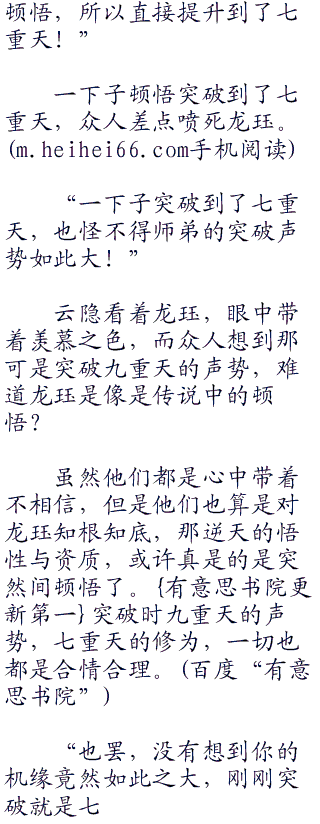 顿悟，所以直接提升到了七
重天！”
一下子顿悟突破到了七
重天，众人差点喷死龙珏。
(m.heihei66.com手机阅读)
“一下子突破到了七重
天，也怪不得师弟的突破声
势如此大！”
云隐看着龙珏，眼中带
着羡慕之色，而众人想到那
可是突破九重天的声势，难
道龙珏是像是传说中的顿
悟？
虽然他们都是心中带着
不相信，但是他们也算是对
龙珏知根知底，那逆天的悟
性与资质，或许真是的是突
然间顿悟了。{有意思书院更
新第一}突破时九重天的声
势，七重天的修为，一切也
都是合情合理。(百度“有意
思书院”)
“也罢，没有想到你的
机缘竟然如此之大，刚刚突
破就是七